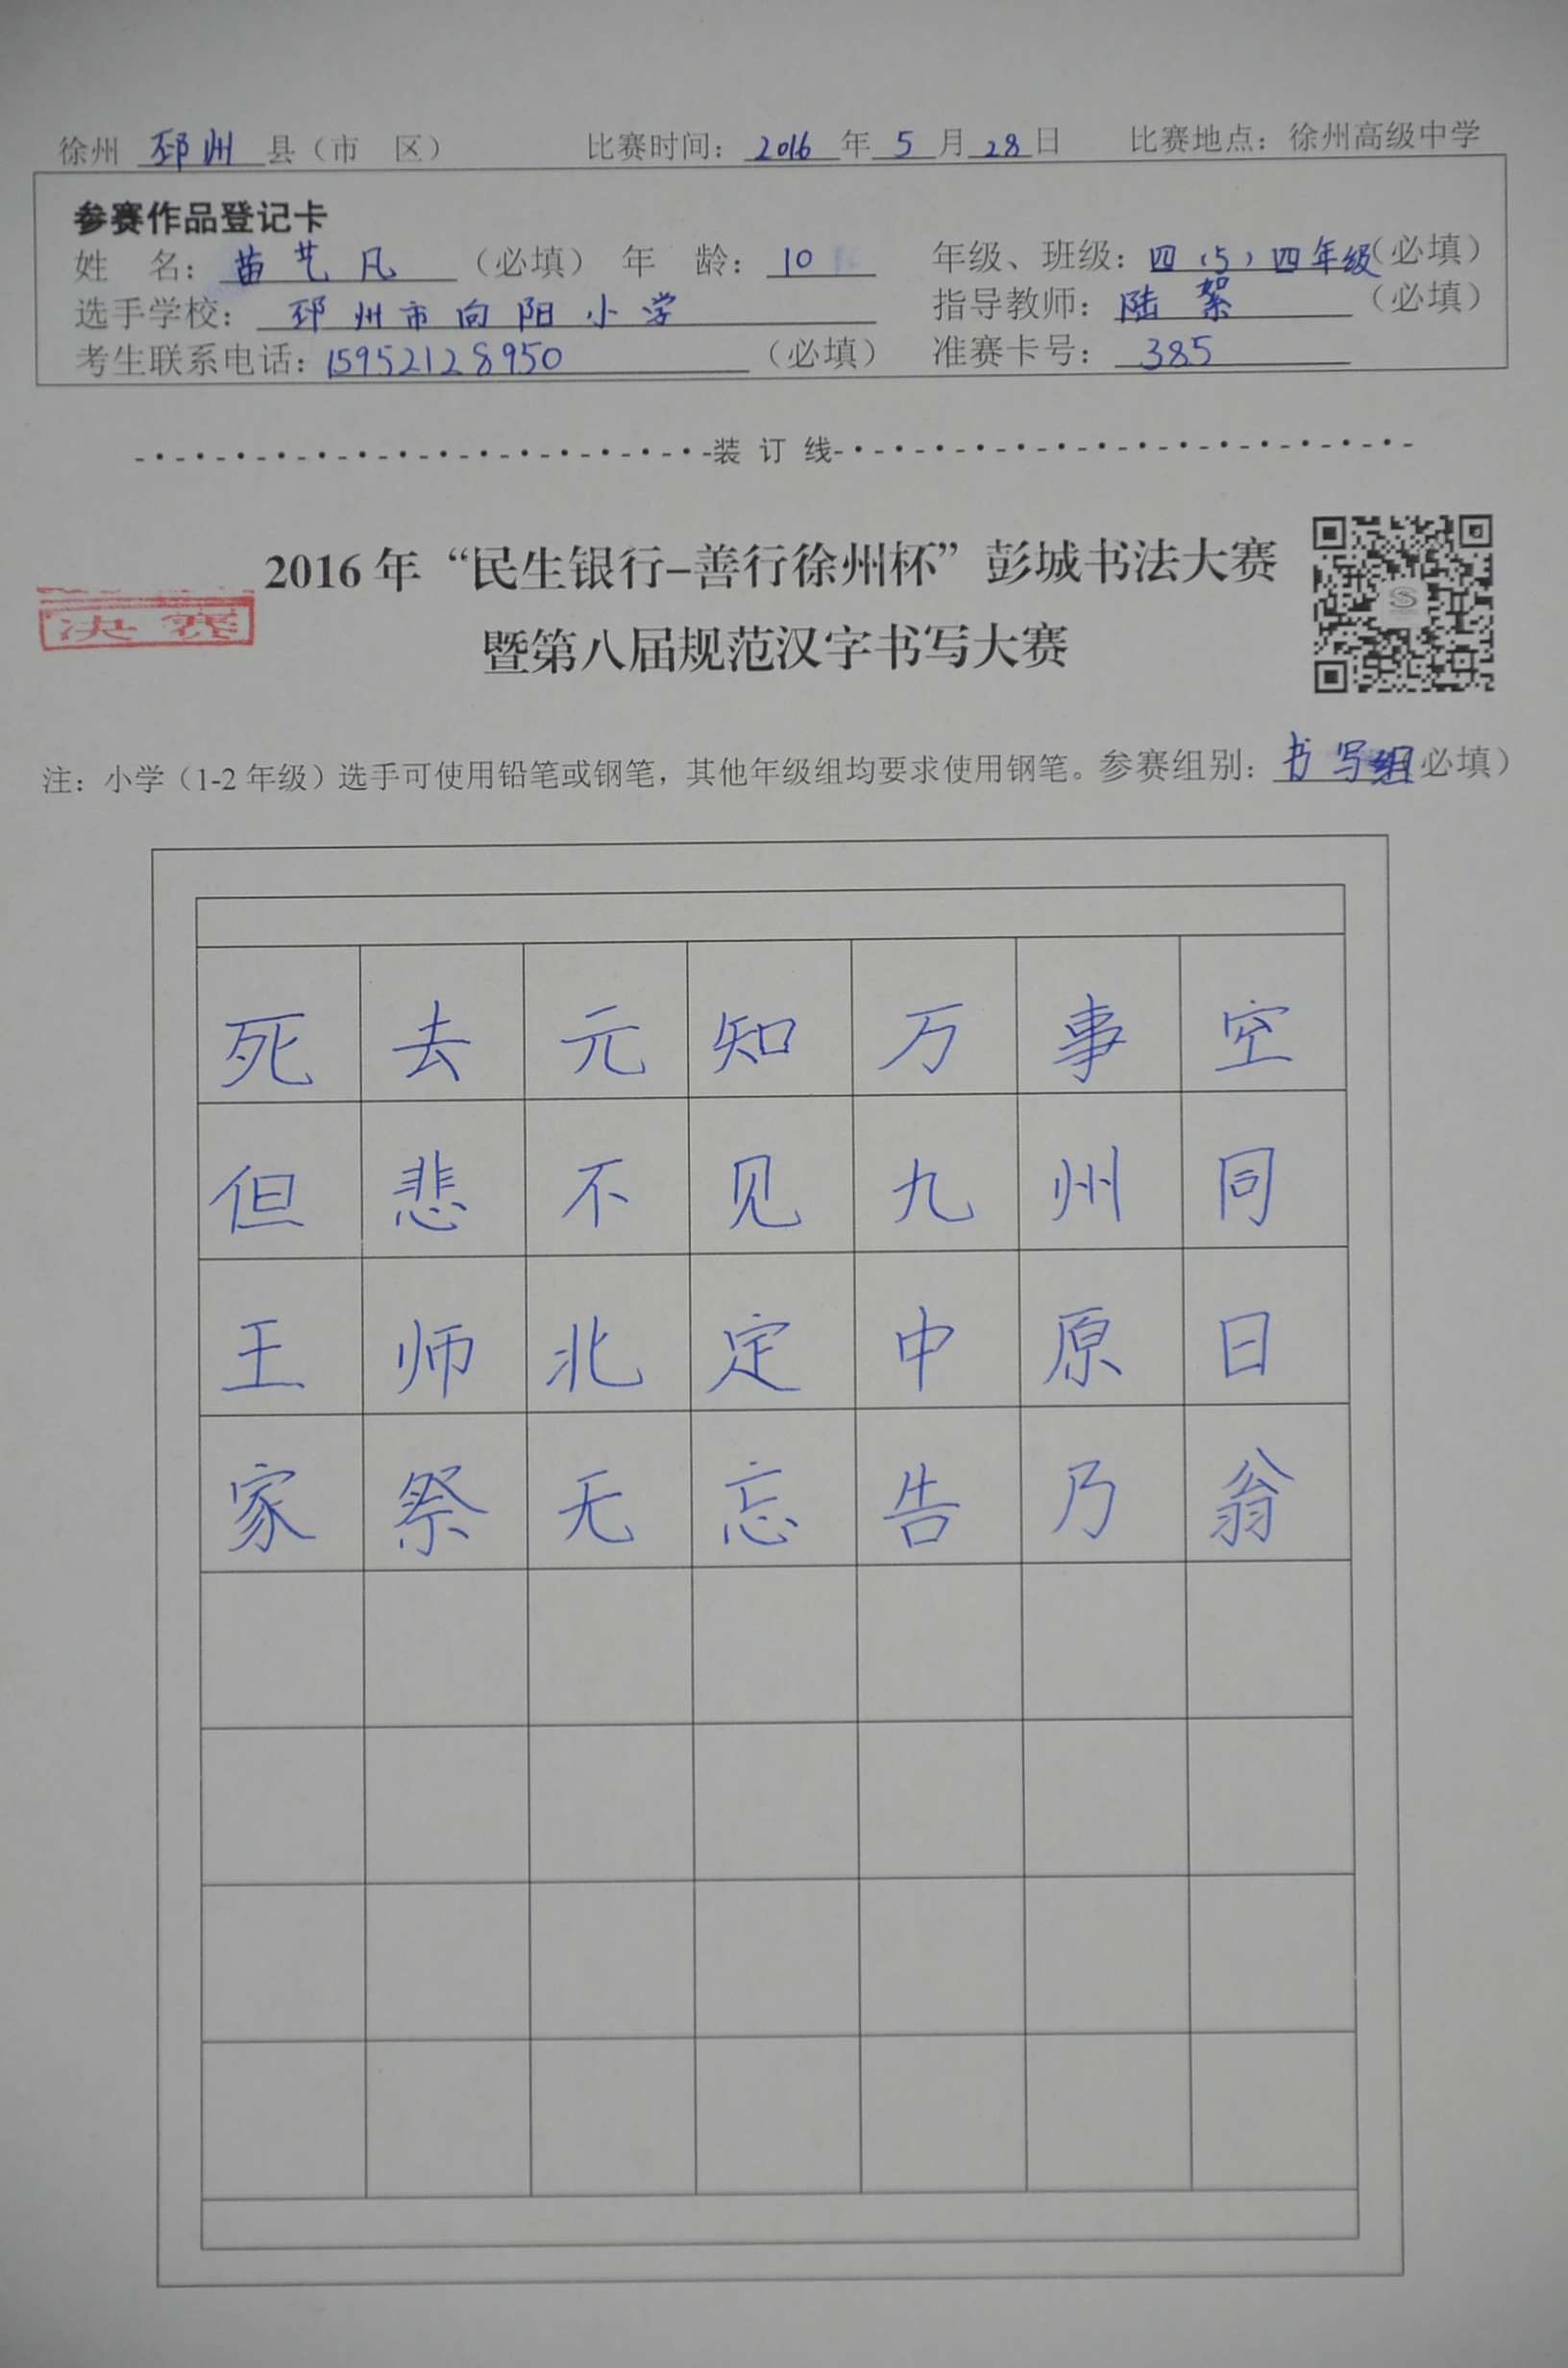 徐州 邳州 县（市 区） 比赛时间：2016 年 5 月 28 日 比赛地点：徐州高级中学
参赛作品登记卡
姓 名：苗艺凡（必填） 年 龄：10 年级、班级：四（5）四年级（必填）
选手学校：邳州市向阳小学 指导教师：陆絮（必填）
考生联系电话：15952128950（必填） 准赛卡号：385
装 订 线
2016 年“民生银行–善行徐州杯”彭城书法大赛
决赛
暨第八届规范汉字书写大赛
注：小学（1-2 年级）选手可使用铅笔或钢笔，其他年级组均要求使用钢笔。参赛组别：书写组（必填）
死去元知万事空
但悲不见九州同
王师北定中原日
家祭无忘告乃翁